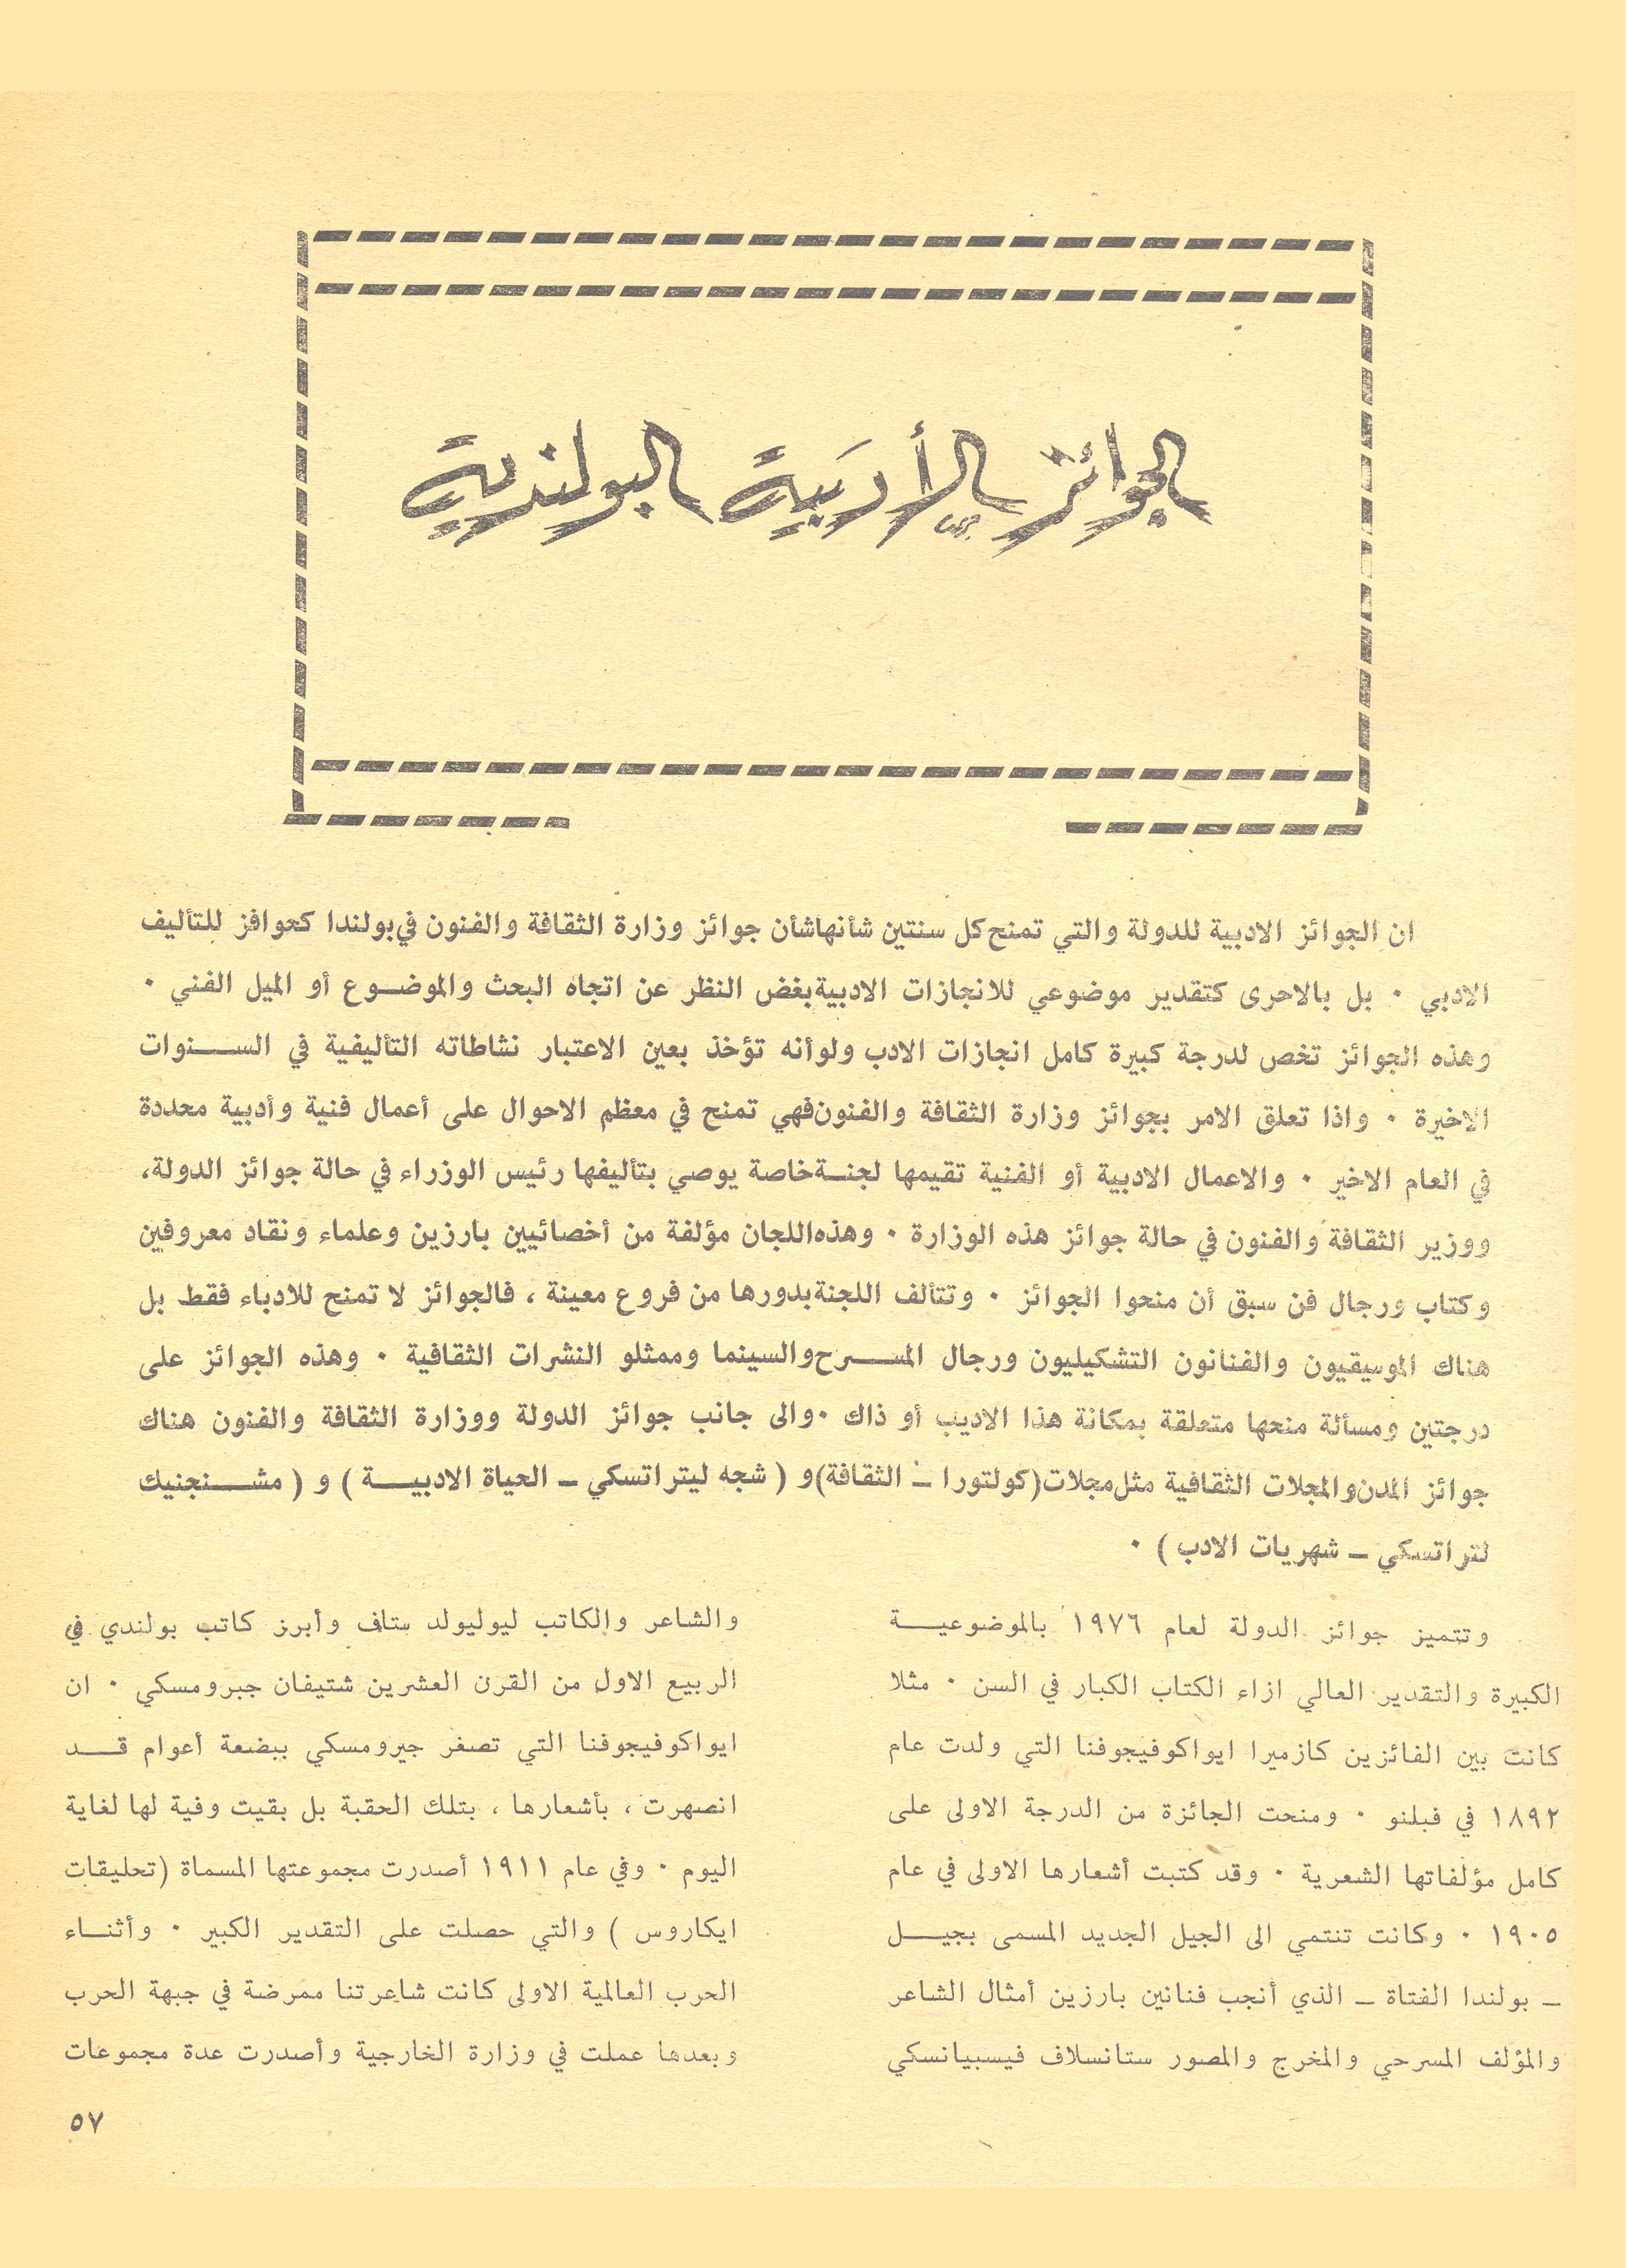 الجوائز الأدبية البولندية
ان الجوائز الادبية للدولة والتي تمنح كل سنتين شأنها شأن جوائز وزارة الثقافة والفنون في بولندا كحوافز للتأليف
الادبي ٠ بل بالاحرى كتقدير موضوعي للانجازات الادبية بغض النظر عن اتجاه البحث والموضوع أو الميل الفني ٠
وهذه الجوائز تخص لدرجة كبيرة كامل انجازات الادب ولو أنه تؤخذ بعين الاعتبار نشاطاته التأليفية في السنوات
الاخيرة ٠ واذا تعلق الامر بجوائز وزارة الثقافة والفنون فهي تمنح في معظم الاحوال على أعمال فنية وأدبية محددة
في العام الاخير ٠ والاعمال الادبية أو الفنية تقيمها لجنة خاصة يوصي بتأليفها رئيس الوزراء في حالة جوائز الدولة،
ووزير الثقافة والفنون في حالة جوائز هذه الوزارة ٠ وهذه اللجان مؤلفة من أخصائيين بارزين وعلماء ونقاد معروفين
وكتاب ورجال فن سبق أن منحوا الجوائز ٠ وتتألف اللجنة بدورها من فروع معينة ، فالجوائز لا تمنح للادباء فقط بل
هناك الموسيقيون والفنانون التشكيليون ورجال المسرح والسينما وممثلو النشرات الثقافية ٠ وهذه الجوائز على
درجتين ومسألة منحها متعلقة بمكانة هذا الاديب أو ذاك ٠ والى جانب جوائز الدولة ووزارة الثقافة والفنون هناك
جوائز المدن والمجلات الثقافية مثل مجلات (كولتورا ـ الثقافة) و ( شجه ليتراتسكي ـ الحياة الادبية ) و ( مشنجنيك
لتراتسكي ـ شهريات الادب ) ٠
وتتميز جوائز الدولة لعام ١٩٧٦ بالموضوعية
الكبيرة والتقدير العالي ازاء الكتاب الكبار في السن ٠ مثلا
كانت بين الفائزين كازميرا ايواكوفيجوفنا التي ولدت عام
١٨٩٢ في فبلنو ٠ ومنحت الجائزة من الدرجة الاولى على
كامل مؤلفاتها الشعرية ٠ وقد كتبت أشعارها الاولى في عام
١٩٠٥ ٠ وكانت تنتمي الى الجيل الجديد المسمى بجيل
ـ بولندا الفتاة ـ الذي أنجب فنانين بارزين أمثال الشاعر
والمؤلف المسرحي والمخرج والمصور ستانسلاف فيسبيانسكي
والشاعر والكاتب ليوليولد ستاف وأبرز كاتب بولندي في
الربيع الاول من القرن العشرين شتيفان جبرومسكي ٠ ان
ايواكوفيجوفنا التي تصغر جيرومسكي ببضعة أعوام قد
انصهرت ، بأشعارها ، بتلك الحقبة بل بقيت وفية لها لغاية
اليوم ٠ وفي عام ١٩١١ أصدرت مجموعتها المسماة (تحليقات
ايكاروس ) والتي حصلت على التقدير الكبير ٠ وأثناء
الحرب العالمية الاولى كانت شاعرتنا ممرضة في جبهة الحرب
وبعدها عملت في وزارة الخارجية وأصدرت عدة مجموعات
٥٧